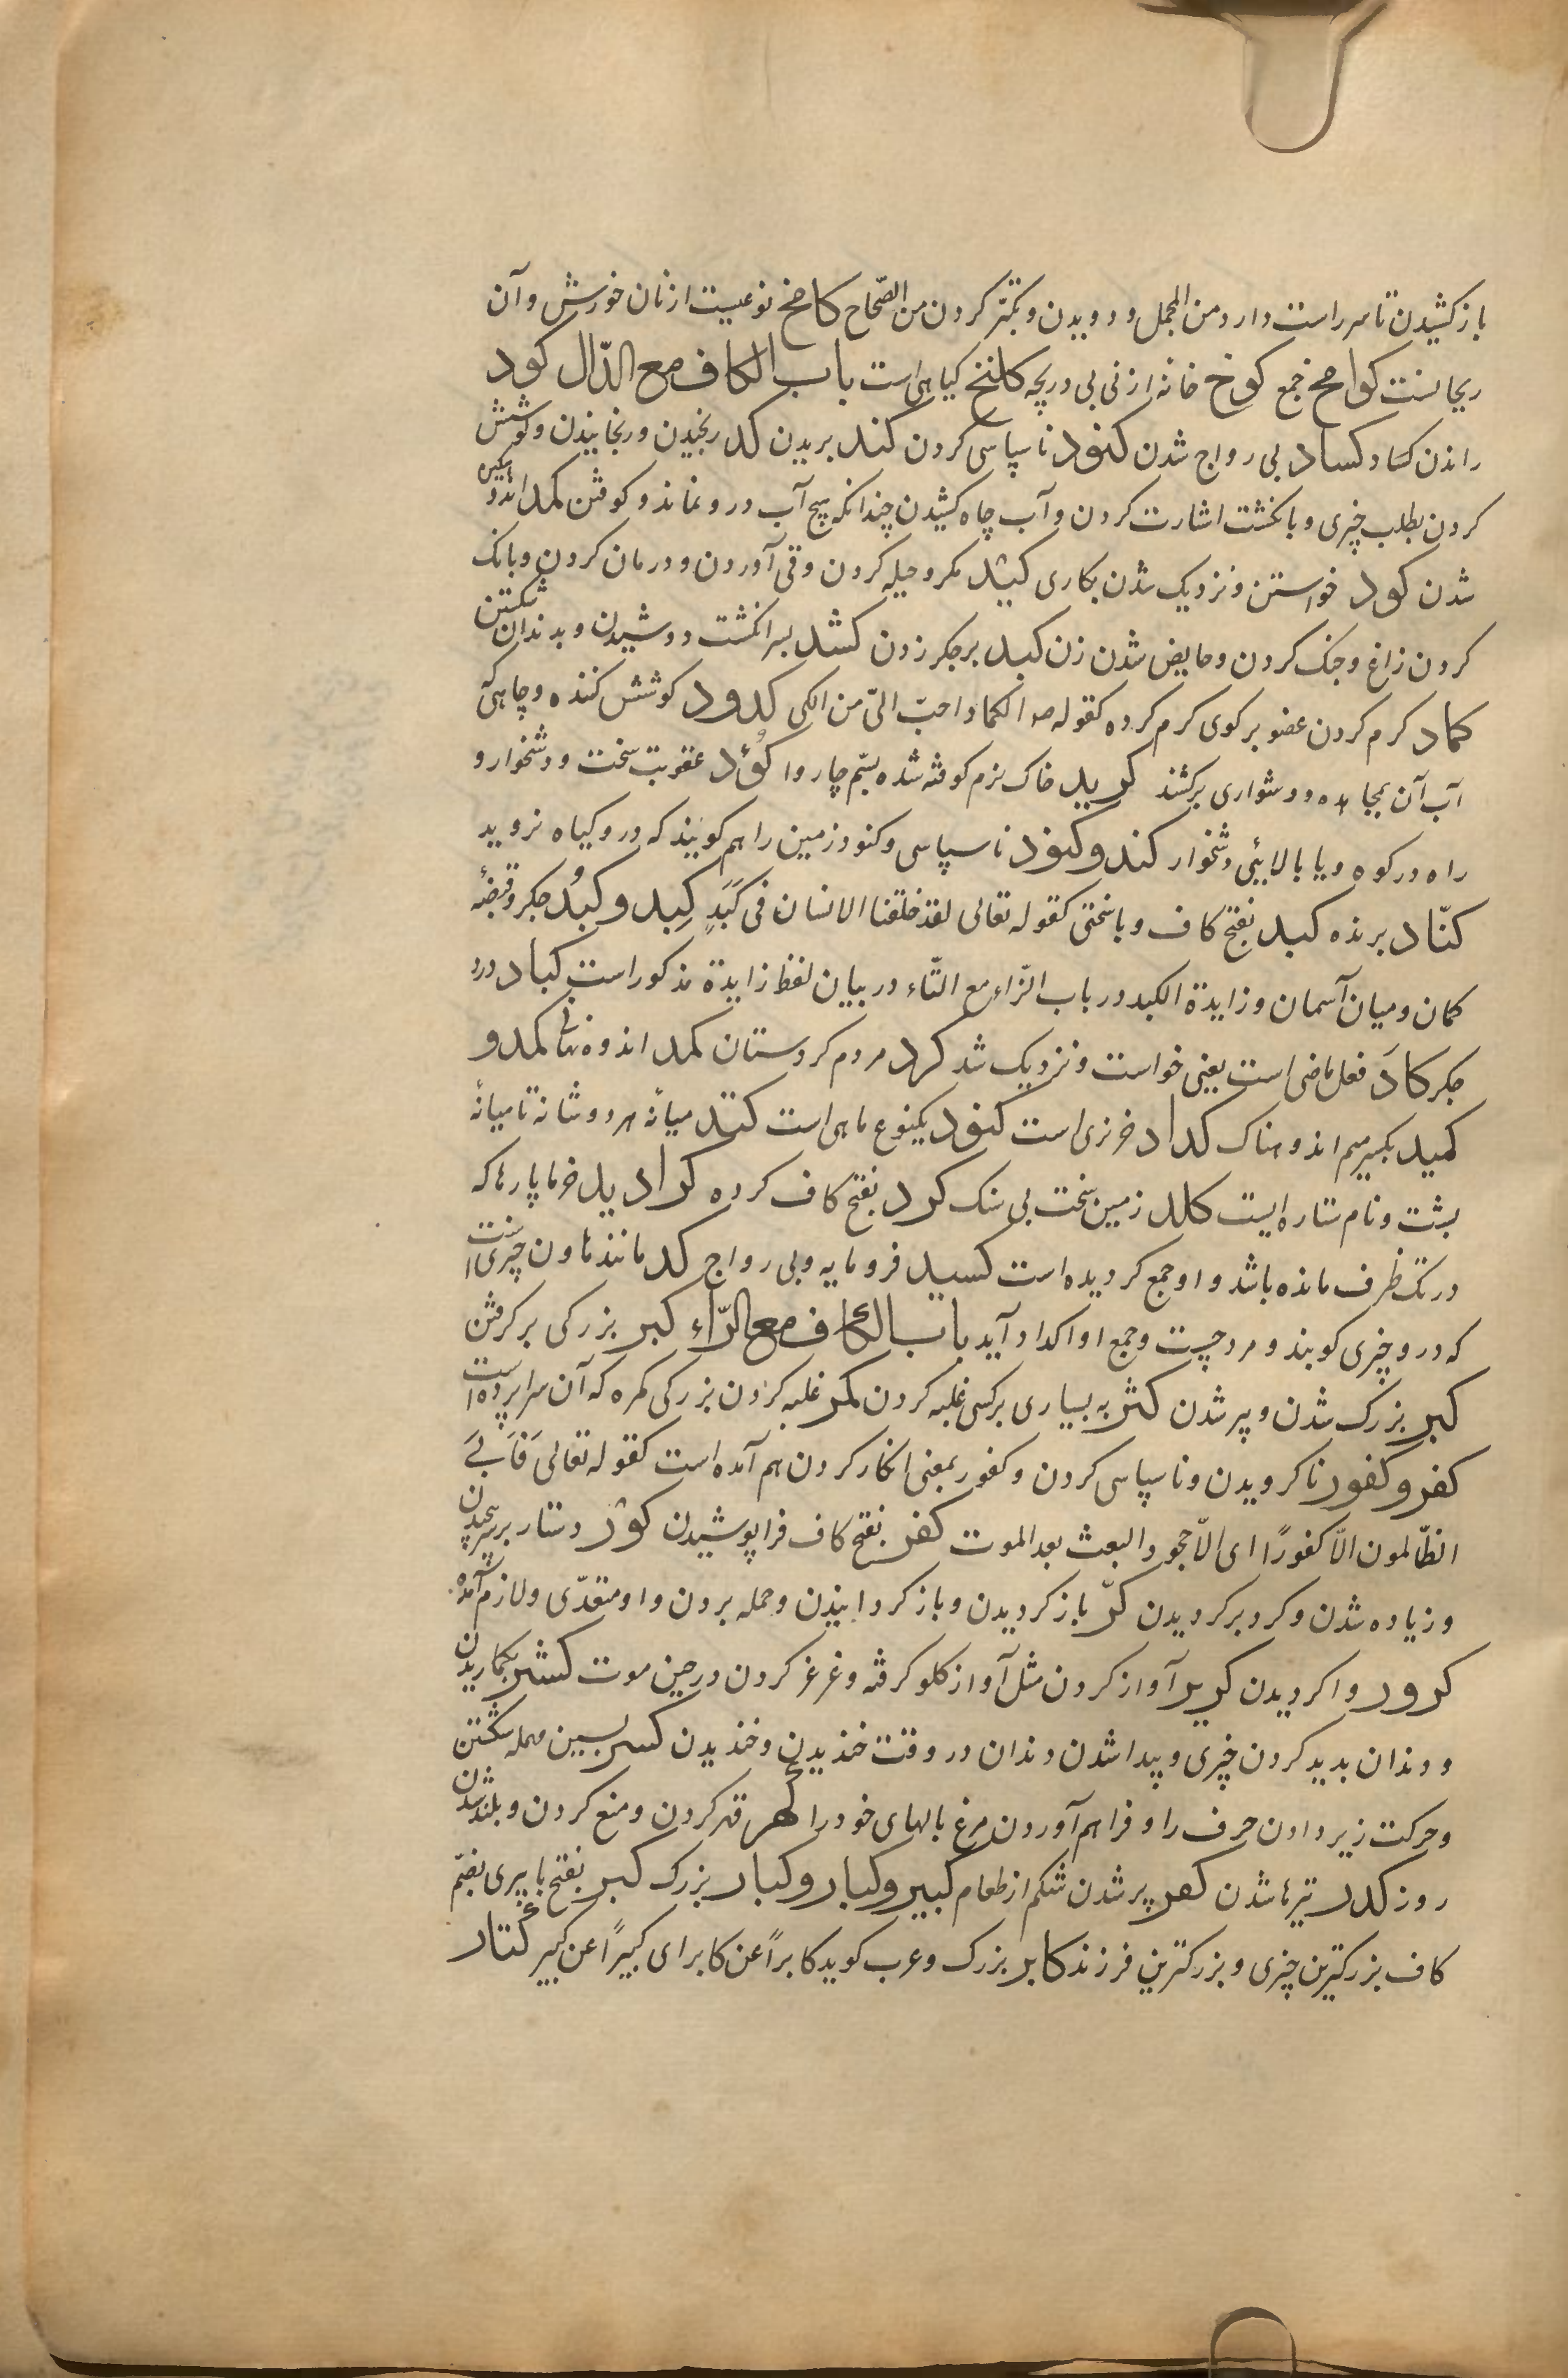 باز کشیدن تا سر راست دارد من المجمل و دویدن و تکبّر کردن من الصّحاح کامخ نوعیست از نان خورش و آن
ریحا لنست کوامخ جمع کوخ خانه از نی بی دریچه کلنخ کیاهی است باب الکاف مع الدّال کود
راندن کساد و کساد بی رواج شدن کنود ناسپاسی کردن کند بریدن کد رنجیدن و رنجانیدن و کوشش
کردن بطلب چیزی و بانکشت اشارت کردن و آب چاه کشیدن چندانکه هیچ آب درو نماند و کوفتن کمد اندوهکین
شدن کود خواستن و نزدیک شدن بکاری کید مکر و حیله کردن و قی آوردن و درمان کردن و بانک
کردن زاغ و جنک کردن و حایض شدن زن کبد بر جکر زدن کشد بسه انکشت دوشیدن و بدندان شکستن
کماد کرم کردن عضو برکوی کرم کرده کقوله صم الکماد احبّ الیّ من الکی کدود کوشش کننده و چاهی که
آب آن بمجاهده و دشواری برکشند کدید خاک نرم کوفته شده بسّم چاروا کؤد عقوبت سخت و دشخوار و
راه در کوه و یا بالایئی دشخوار کند و کنود ناسپاسی و کنود زمین را هم کویند که درو کیاه نروید
کنّاد برنده کبد بفتح کاف و با سختی کقوله تعالی لقد خلقنا الانسان فی کَبَدٍ کِبد و کبُد جکر و قبضهٔ
کمان و میان آسمان و زایدة الکبد در باب الزّاء مع التّاء در بیان لفظ زایدة مذکور است کباد درد
جکر کادَ فعل ماضی است یعنی خواست و نزدیک شد کرد مردم کردستان کمد اندوه نهانی کمد و
کمید بکسر میم اندوهناک کداد خرنری است کنود یکنوع ماهی است کتد میانهٔ هر دو شانه تا میانهٔ
پشت و نام ستاره ایست کلد زمین سخت بی سنک کرد بفتح کاف کرده کرادید خرما پارها که
در تک ظرف مانده باشد و او جمع کردیده است کسید فرومایه و بی رواج کد مانند هاون چیزی است
که درو چیزی کوبند و مرد چست و جمع او اکداد آید باب الکاف مع الرّاء کبر بزرکی بر کرفتن
کبر بزرک شدن و پیر شدن کثر به بسیاری بر کسی غلبه کردن کمر غلبه کردن بزرکی کمره که آن سرا پرده است
کفر و کفور ناکرویدن و ناسپاسی کردن و کفور بمعنی انکار کردن هم آمده است کقوله تعالی فَاَبیَ
الظّالمون الاّ کفورًا ای الاّ جحود البعث بعد الموت کفر بفتح کاف فراپوشیدن کور دستار بر سر پیچیدن
و زیاده شدن و کرد بر کردیدن کرّ باز کردیدن و باز کردانیدن و حمله بردن و او متعدّی و لازم آمده
کرور واکردیدن کریر آواز کردن مثل آواز کلو کرفته و غرغر کردن در حین موت کشر بکماریدن
و دندان بدید کردن چیزی و پیدا شدن دندان در وقت خندیدن و خندیدن کسر بسین مهمله شکستن
و حرکت زیر دادن حرف را و فراهم آوردن مرغ بالهای خود را کهر قهر کردن و منع کردن و بلند شدن
روز کدر تیره شدن کعر پر شدن شکم از طعام کبیر و کبار و کبار بزرک کبر بفتح با پیری بضّم
کاف بزرکترین چیزی و بزرکترین فرزند کابر بزرک و عرب کوید کابراً عن کابر ای کبیرًا عن کبیر کتار